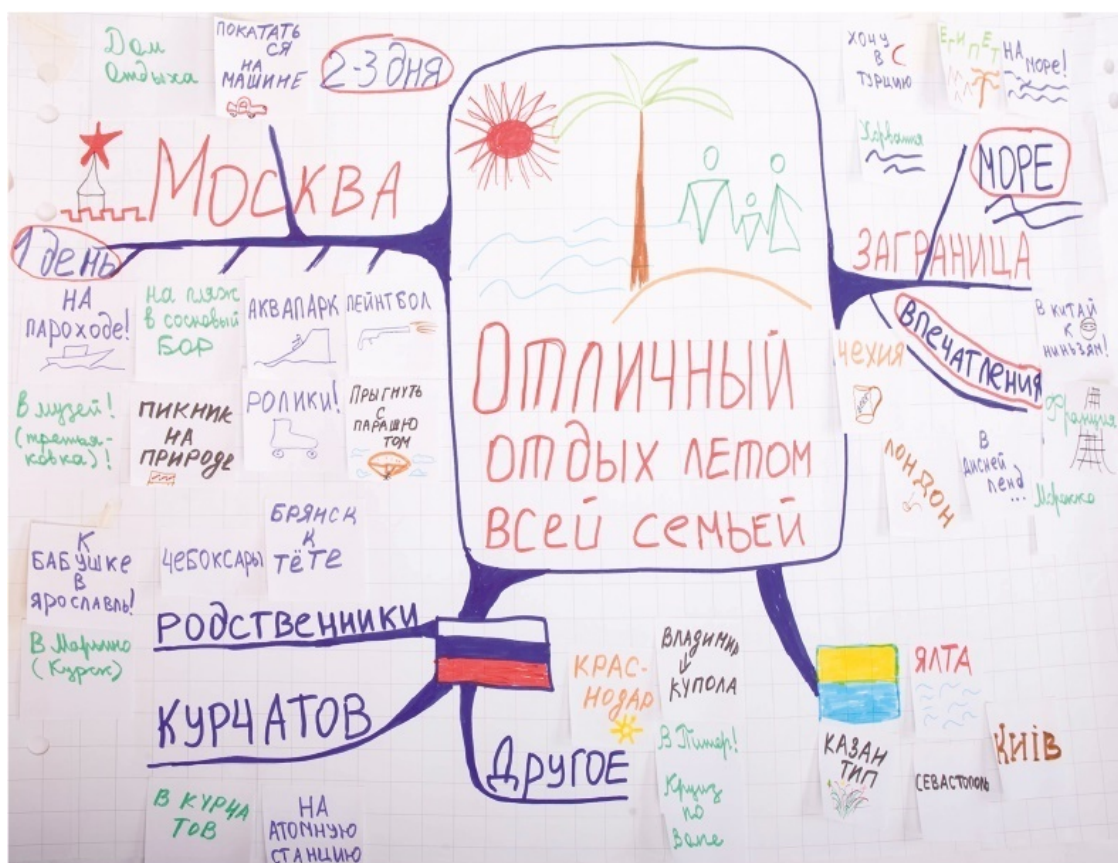 Дом
Отдыха
ПОКАТАТЬ
СЯ
НА
МАШИНЕ
2-3 ДНЯ
МОСКВА
1 день
НА
ПАРОХОДЕ!
на пляж
в сосновый
БОР
АКВАПАРК
ПЕЙНТБОЛ
В музей!
(третья-
ковка)!
ПИКНИК
НА
ПРИРОДЕ
РОЛИКИ!
ПРЫГНУТЬ
С
ПАРАШЮ
ТОМ
ОТЛИЧНЫЙ
ОТДЫХ ЛЕТОМ
ВСЕЙ СЕМЬЕЙ
ХОЧУ
В
ТУРЦИЮ
ЕГИПЕТ
НА
МОРЕ!
Хорватия
МОРЕ
ЗАГРАНИЦА
ВПЕЧАТЛЕНИЯ
ЧЕХИЯ
В КИТАЙ
К
НИНЬЗЯМ!
Франция
ЛОНДОН
В
ДИСНЕЙ
ЛЕНД
...
Марокко
К
БАБУШКЕ
В
ЯРОСЛАВЛЬ!
ЧЕБОКСАРЫ
БРЯНСК
К
ТЁТЕ
РОДСТВЕННИКИ
В Марьино
(Курск)
КУРЧАТОВ
В КУРЧА
ТОВ
НА
АТОМНУЮ
СТАНЦИЮ
ДРУГОЕ
КРАС-
НОДАР
ВЛАДИМИР
КУПОЛА
В Питер!
Круиз
по
Волге
КАЗАН
ТИП
ЯЛТА
СЕВАСТОПОЛЬ
КИЇВ